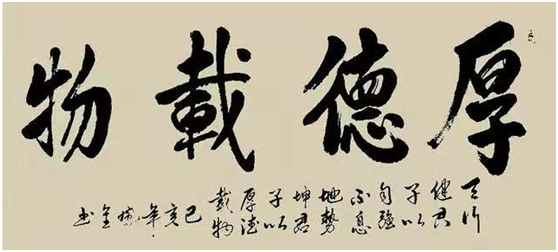 厚德載物
天行
健君
子以
自強
不息
地势
坤君
子以
厚德
載物
己亥年
书